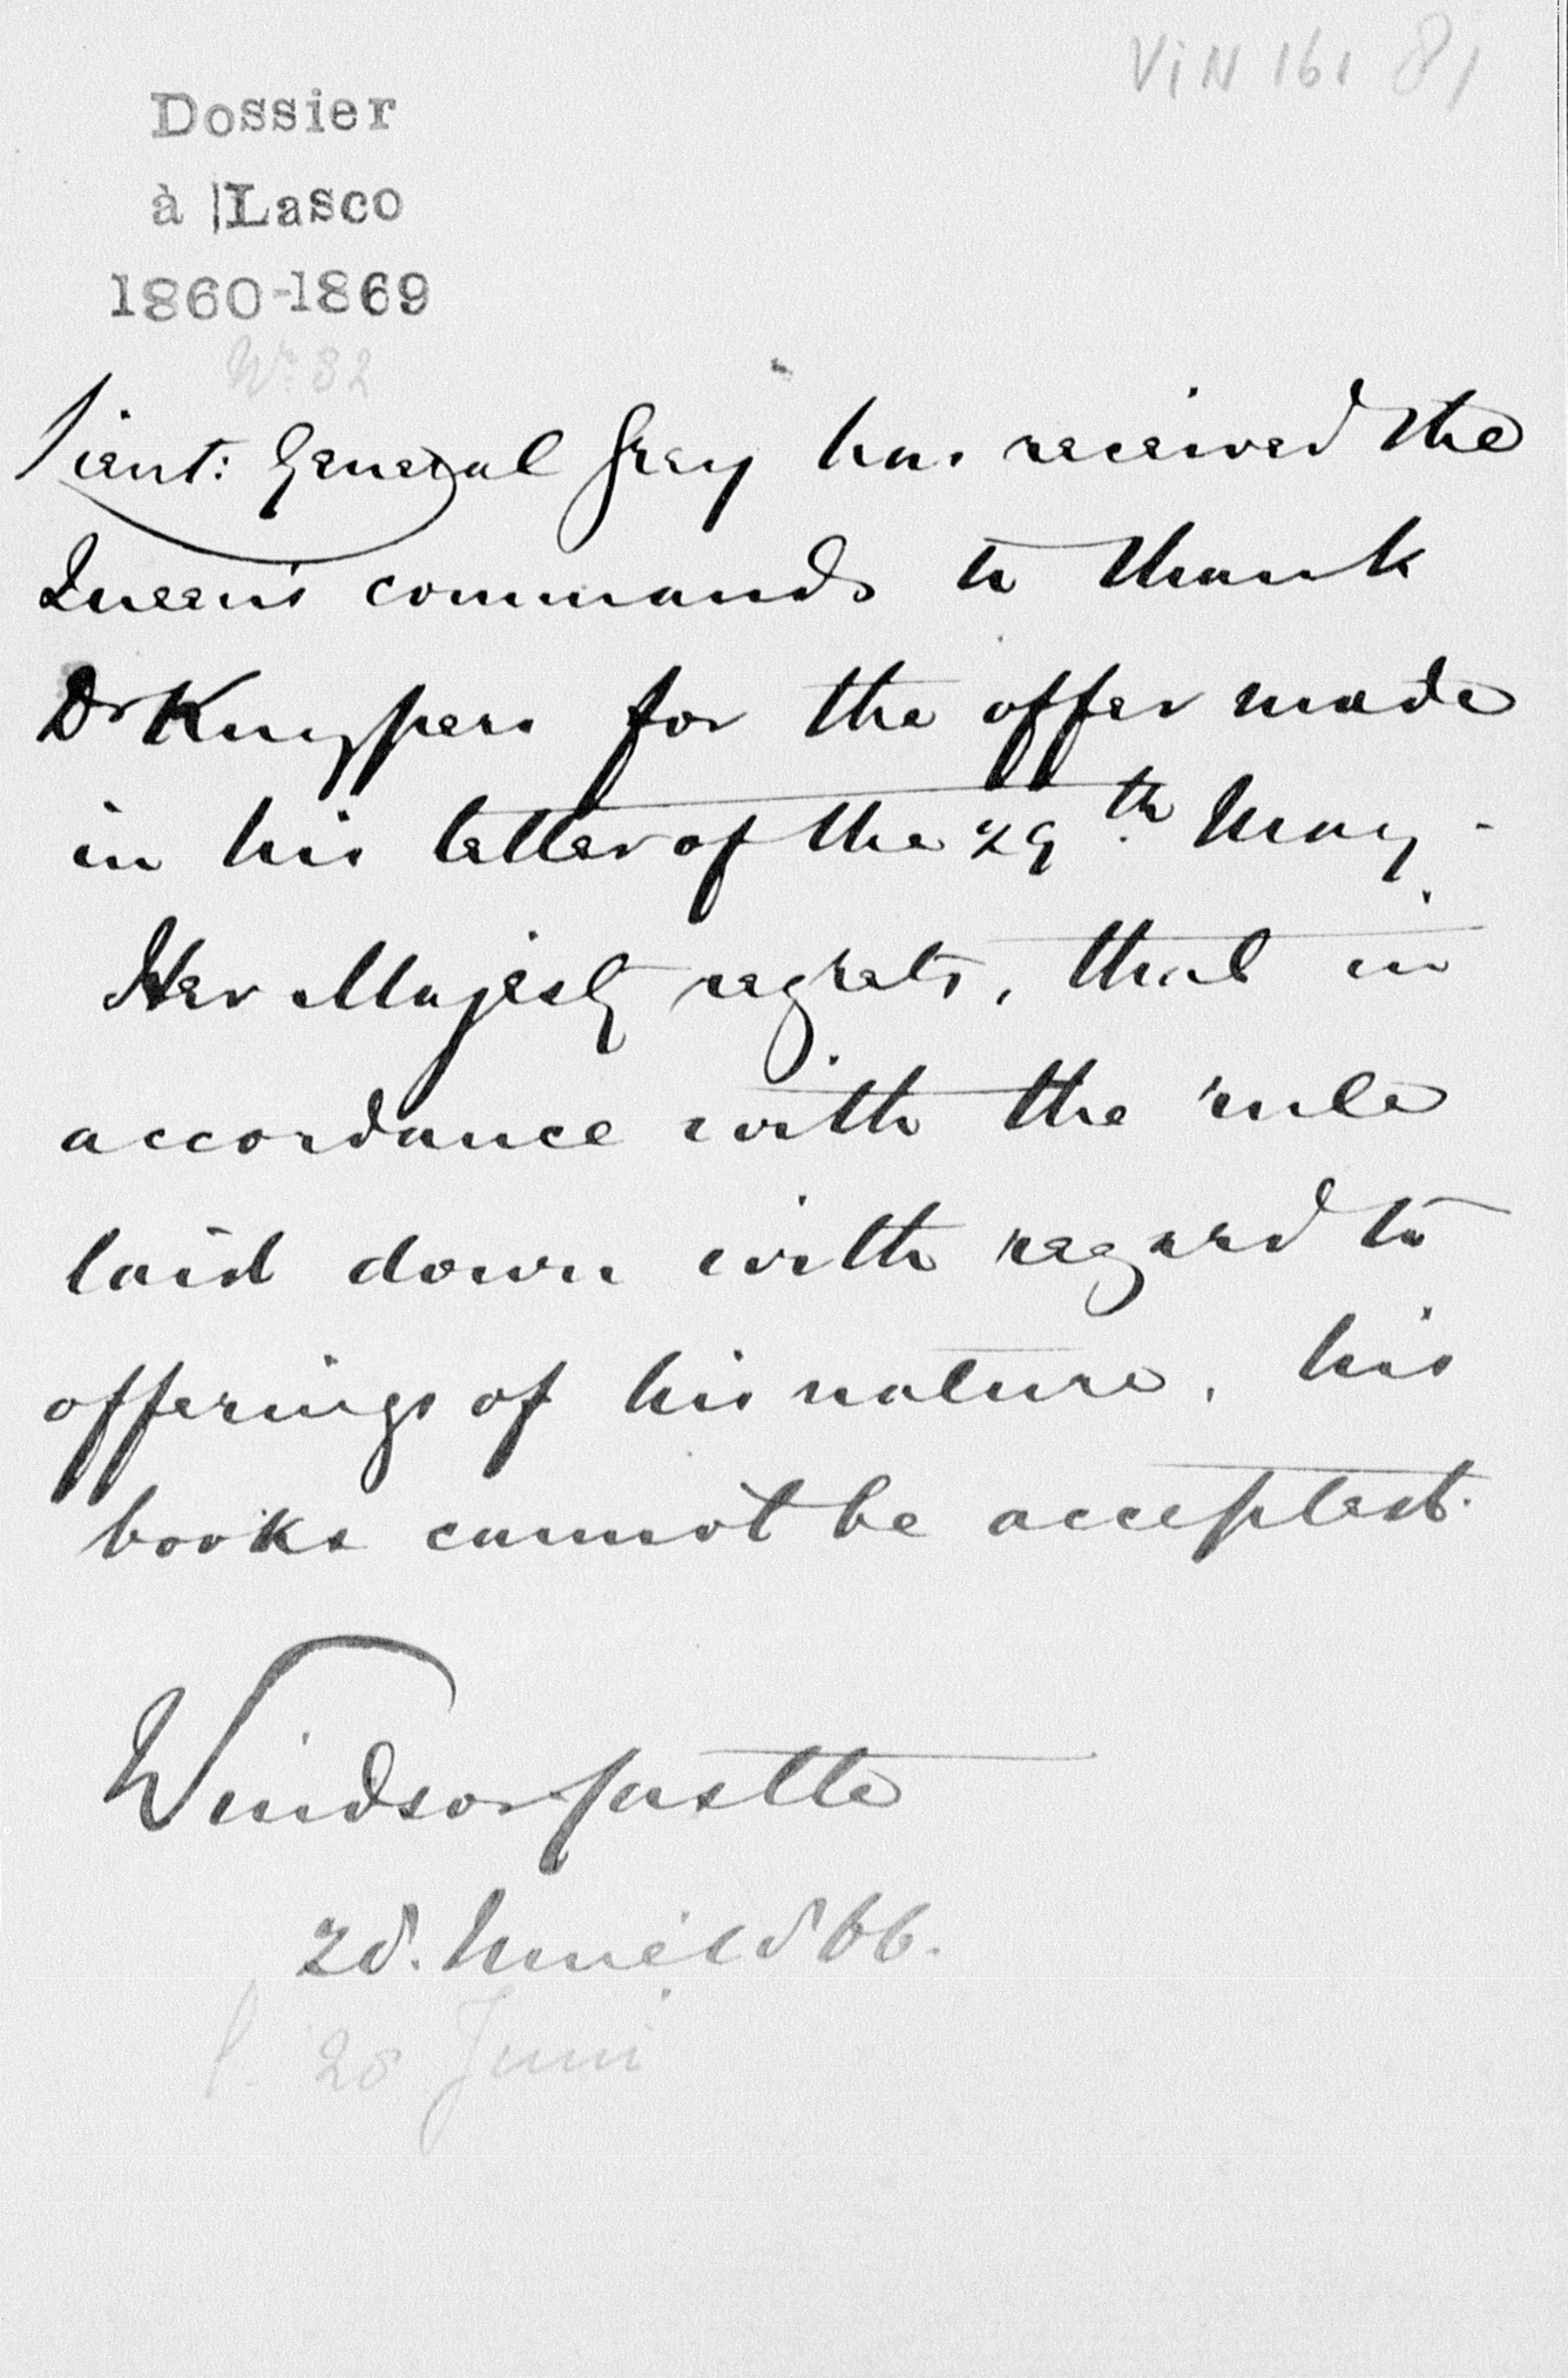 ViN 161 81
Dossier
à Lasco
1860-1869
Nr. 82
Lieut: General Grey has received the
Queen's commands to thank
Dr Kuypers for the offer made
in his letter of the 29th. May.
Her Majesty regrets, that in
accordance with the rule
laid down with regard to
offerings of his nature, his
books cannot be accepted.
Windsor Castle
28. 1866.
28 Juni